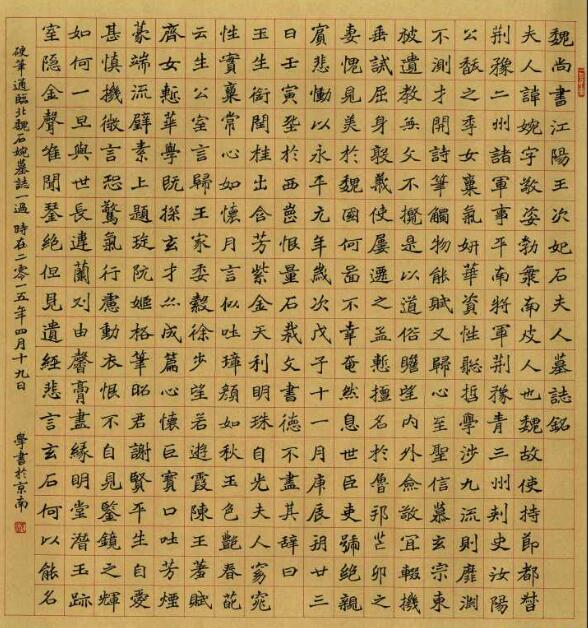 魏尚書江陽王次妃石夫人墓誌銘
夫人諱婉字敬姿勃海南皮人也魏故使持節都督
荆豫二州諸軍事平南將軍荆豫青三州刾史汝陽
公馛之季女稟氣妍華資性聦哲學涉九流則靡淵
不測才開詩筆觸物能賦又歸心至聖信慕玄宗東
被遺教無文不攬是以道俗瞻望内外僉敬冝輟機
垂誡屈身殺彘使屢遷之孟慙擅名於魯邦芒卯之
妻愧見美於魏國何啚不幸奄然息世臣吏號絶親
賓悲慟以永平元年歲次戊子十一月庚辰朔廿三
日壬寅塟於西崗恨量石裁文書德不盡其辞曰
玉生銜閏桂出含芳紫金天利明珠自光夫人窈窕
性實稟常心如懷月言似吐璋顏如秋玉色艷春葩
云生公室言歸王家委縠徐步望若遊霞陳王羞賦
齊女慙華學既探玄才亦成篇心懷巨寶口吐芳煙
豪端流璧素上題琁阮姬格筆昭君謝賢平生自愛
甚慎機微言恐驚氣行慮動衣恨不自見鑒鏡之輝
如何一旦與世長違蘭刈由馨膏盡緣明堂潛玉跡
室隐金聲隹聞琴絶但見遺經悲言玄石何以能名
硬筆通臨北魏石婉墓誌一過 時在二零一五年四月十九日 學書於京南